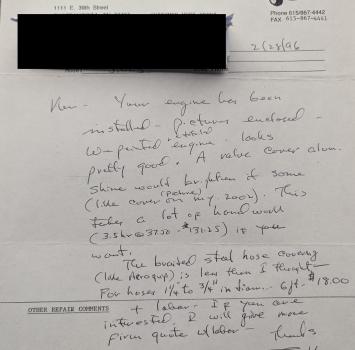 1111 E. 30th Street
Phone 615/867-4442
FAX 615-867-4441
2/28/96
Ken - Your engine has been
installed - pictures enclosed -
W-painted engine. looks
pretty good. A valve cover alum.
Shine would brighten it some
(like cover (picture) on my 2002). This
takes a lot of hand work
(3.5 hr @ 37.50 - $131.25) if you
want.
The braided steel hose covering
(like Aeroquip) is less than I thought
For hoses 1 1/4" to 3/4" in diam. 6ft - $18.00
OTHER REPAIR COMMENTS
+ labor. If you are
interested, I will give more
firm quote w/labor. Thanks